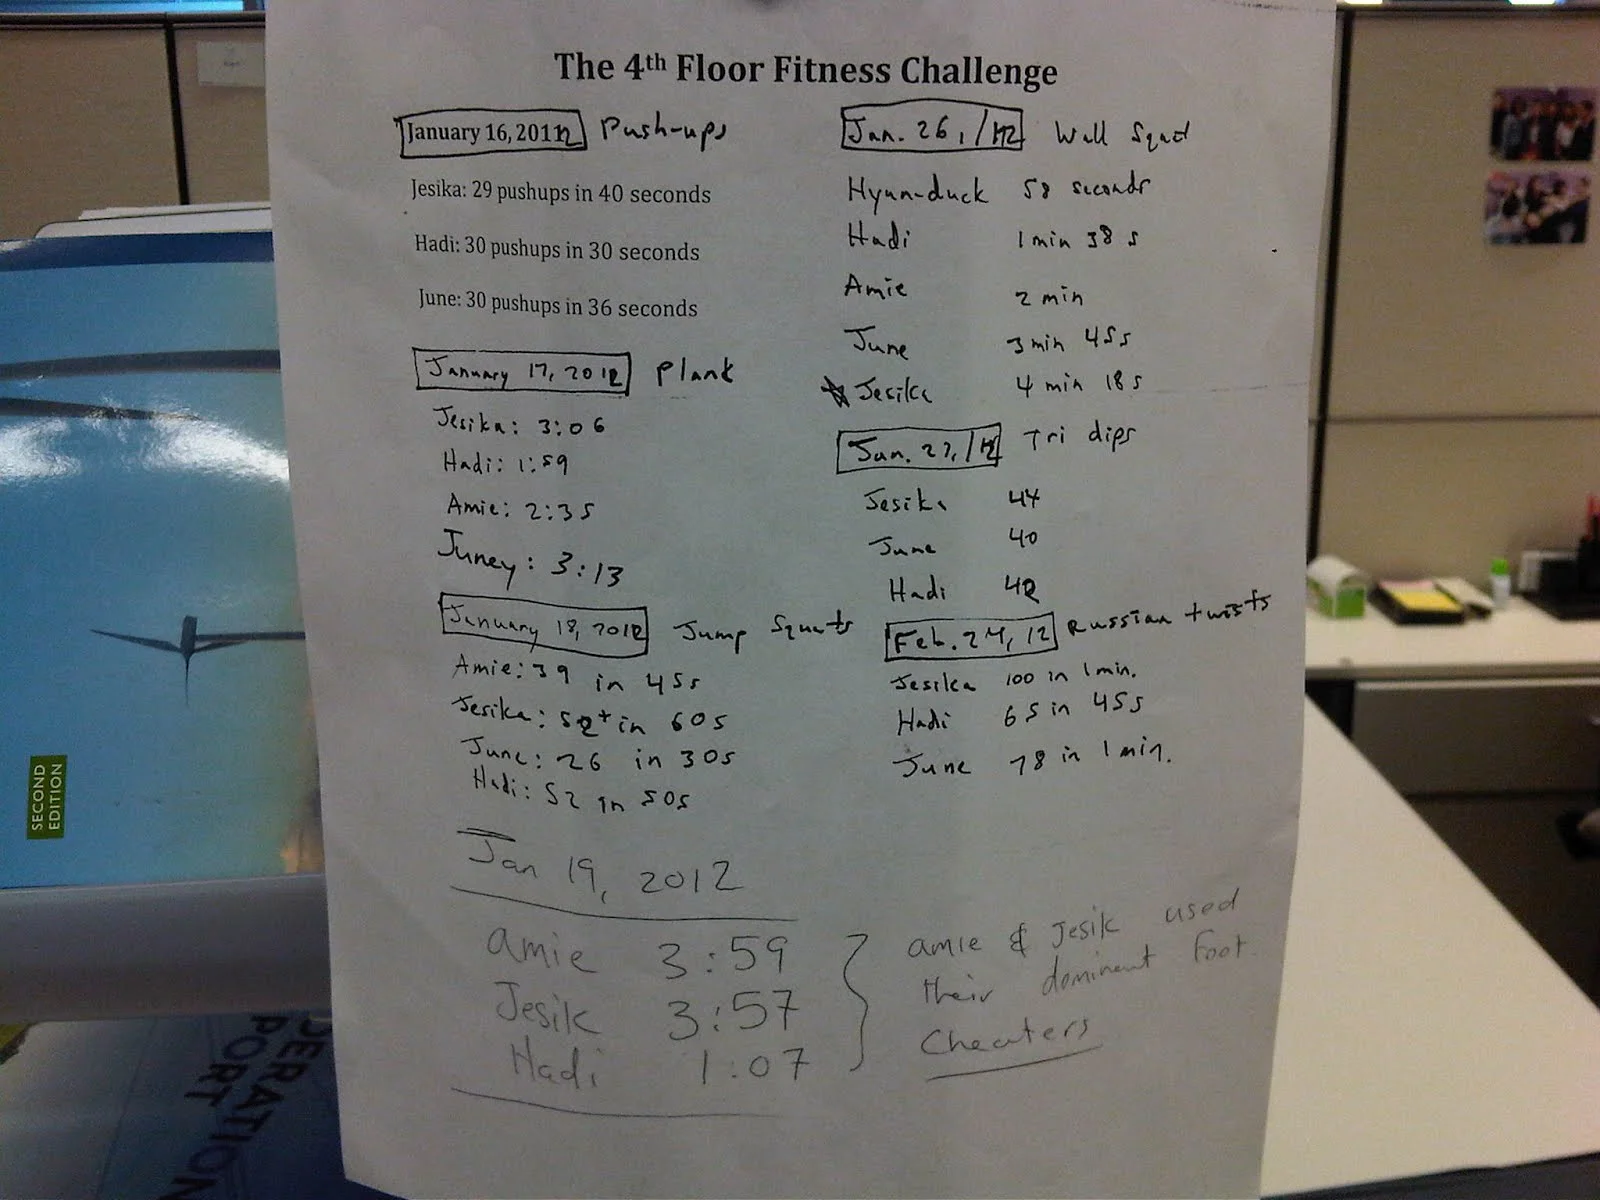 The 4th Floor Fitness Challenge
January 16, 2012 Push-ups
Jesika: 29 pushups in 40 seconds
Hadi: 30 pushups in 30 seconds
June: 30 pushups in 36 seconds
January 17, 2012 Plank
Jesika: 3:06
Hadi: 1:59
Amie: 2:35
Juney: 3:13
January 18, 2012 Jump Squats
Amie: 39 in 45s
Jesika: 52+ in 60s
June: 26 in 30s
Hadi: 52 in 50s
Jan 19, 2012
amie 3:59
Jesik 3:57
Hadi 1:07
amie & Jesik used
their dominant foot.
Cheaters
Jan. 26, /12 Wall Squat
Hyun-duck 58 seconds
Hadi 1 min 38 s
Amie 2 min
June 3 min 45s
Jesika 4 min 18s
Jan. 27, /12 Tri dips
Jesika 44
June 40
Hadi 42
Feb. 24, 12 Russian twists
Jesika 100 in 1 min.
Hadi 65 in 45s
June 78 in 1 min.
SECOND
EDITION
PORT